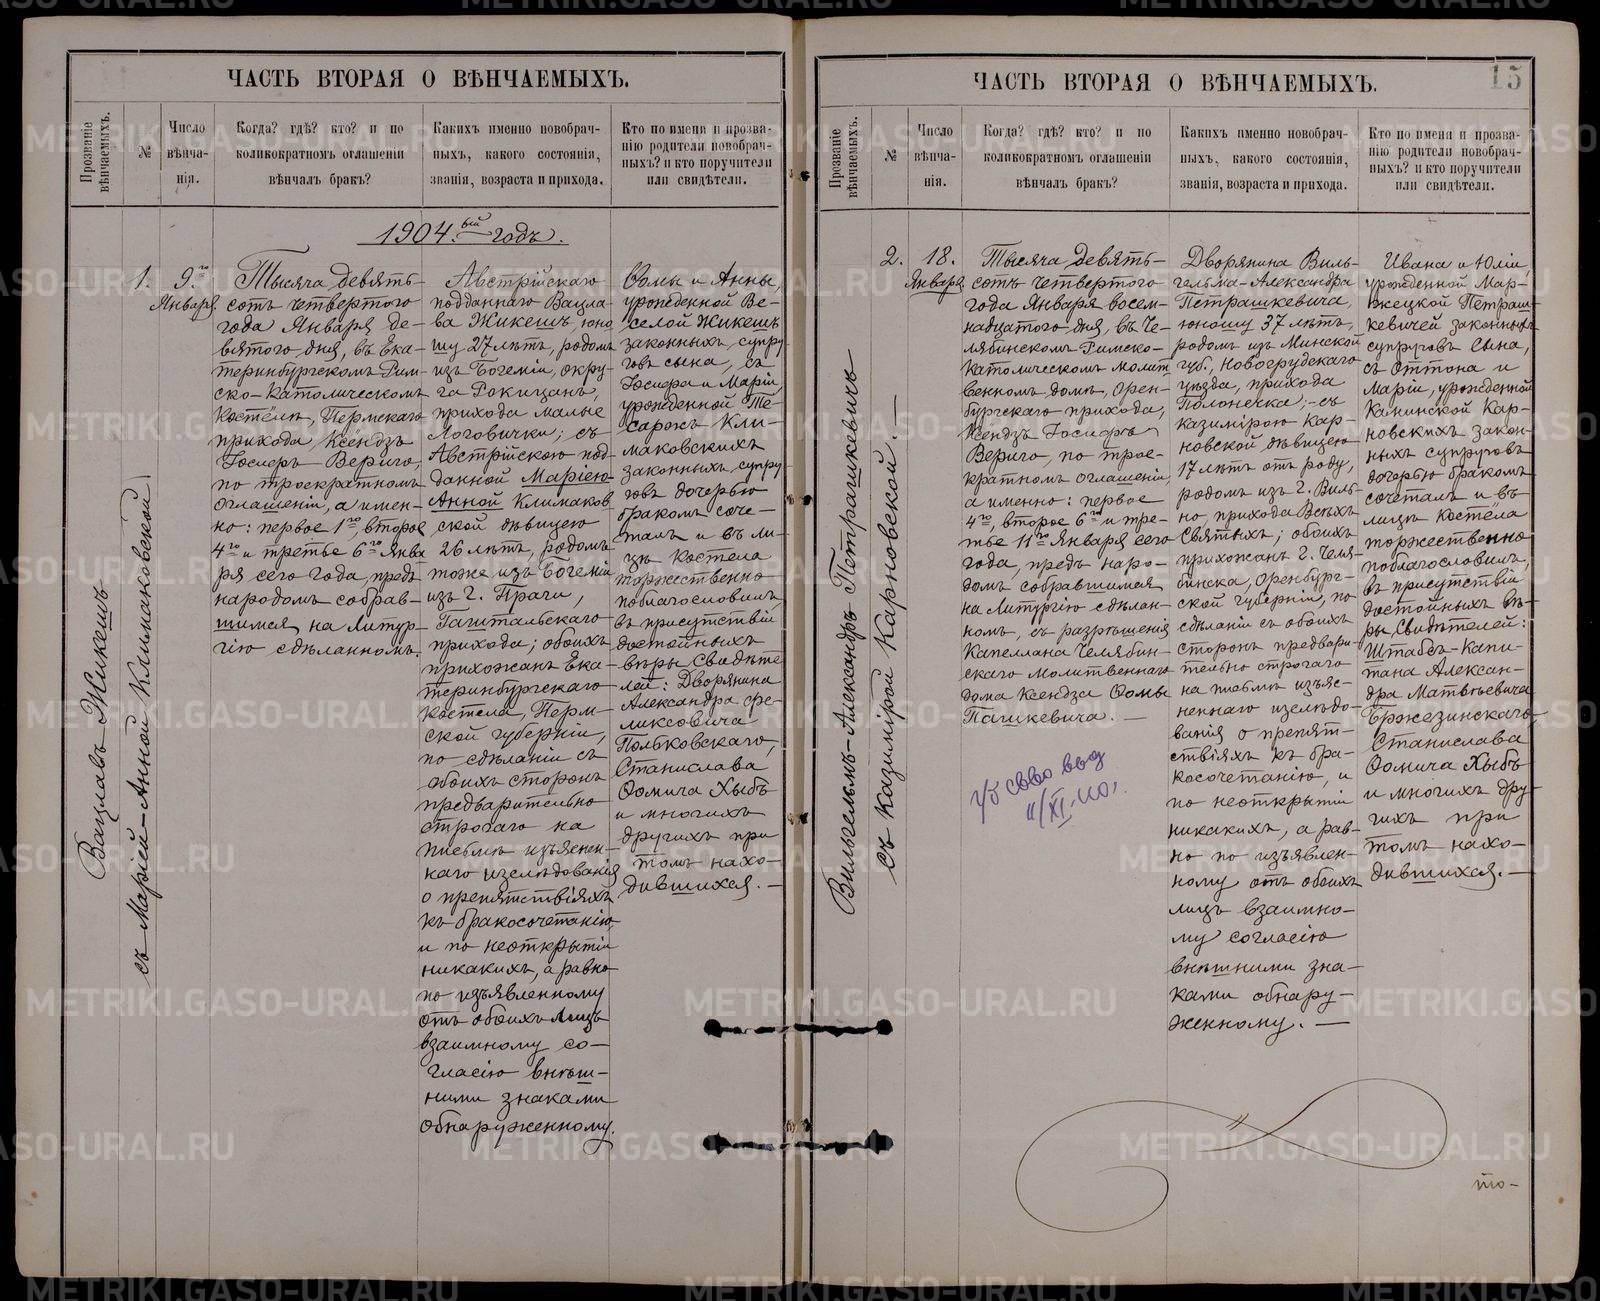 ЧАСТЬ ВТОРАЯ О ВѢНЧАЕМЫХЪ.
Прозваніе вѣнчаемыхъ.
№
Число вѣнча-нія.
Когда? гдѣ? кто? и по
коликократномъ оглашеніи
вѣнчалъ бракъ?
Какихъ именно новобрач-
ныхъ, какого состоянія,
званія, возраста и прихода.
Кто по имени и прозва-
нію родители новобрач-
ныхъ? и кто поручители
или свидѣтели.
1904.ый годъ.
Вацлавъ Жикешъ
съ Маріей-Анной Климаковской
1.
9.го
Января
Тысяча девять-
сотъ четвертого
года Января де-
вятого дня, въ Ека-
теринбургскомъ Рим-
ско-Католическомъ
Костёлѣ, Пермскаго
прихода, Ксендзъ
Іосифъ Вериго,
по троекратномъ
оглашеніи, а имен-
но: первое 1го, второе
4го и третье 6го Янва
ря сего года, предъ
народомъ собрав-
шимся на Литур-
гію сдѣланномъ.
Австрійскаго
подданнаго Вацла-
ва Жикешъ, юно
шу 27 лѣтъ, родомъ
изъ Богеміи, окру-
га Рокицанъ,
прихода малые
Логовички; съ
Австрійскою под
данной Маріею-
Анной Климаков
ской дѣвицею
26 лѣтъ, родомъ
тоже изъ Богеміи
изъ г. Праги,
Гаштальскаго
прихода; обоихъ
прихожанъ Ека-
теринбургскаго
Костела, Перм-
ской губерніи,
по сдѣланіи съ
обоихъ сторонъ
предварительно
строгаго на
письмѣ изъяснен-
наго изслѣдованія
о препятствіяхъ
къ бракосочетанію,
и по неоткрытіи
никакихъ, а равно
по изъявленному
отъ обоихъ лицъ
взаимному со-
гласію внѣш-
ними знаками
обнаруженному.
Ѳомы и Анны,
урожденной Ве-
селой Жикешъ
законныхъ супру
говъ сына, съ
Іосифа и Маріи,
урожденной Те-
сарокъ Кли-
маковскихъ
законныхъ супру-
говъ дочерью
бракомъ соче-
талъ и въ ли-
цѣ Костела
торжественно
поблагословилъ,
въ присутствіи
достойныхъ
вѣры Свидѣте
лей: Дворянина
Александра Фе-
ликсовича
Полтковскаго,
Станислава
Ѳомича Хыбъ
и многихъ
другихъ при
томъ нахо-
дившихся. —
ЧАСТЬ ВТОРАЯ О ВѢНЧАЕМЫХЪ.
15
Прозваніе вѣнчаемыхъ.
№
Число вѣнча-нія.
Когда? гдѣ? кто? и по
коликократномъ оглашеніи
вѣнчалъ бракъ?
Какихъ именно новобрач-
ныхъ, какого состоянія,
званія, возраста и прихода.
Кто по имени и прозва-
нію родители новобрач-
ныхъ? и кто поручители
или свидѣтели.
Вильгельмъ-Александръ Петрашкевичъ
съ Казимірой Карновской. —
2.
18.
Января
Тысяча девять-
сотъ четвертого
года Января восем-
надцатого дня, въ Че-
лябинскомъ Римско-
Католическомъ молит
венномъ домѣ, Орен-
бургскаго прихода,
Ксендзъ Іосифъ
Вериго, по трое-
кратномъ оглашеніи,
а именно: первое
4го, второе 6го и тре-
тье 11го Января сего
года, предъ наро-
домъ собравшимся
на Литургію сдѣлан-
номъ, съ разрѣшенія
Капеллана Челябин-
скаго Молитвеннаго
дома Ксендза Ѳомы
Пашкевича. —
Дворянина Виль-
гельма-Александра
Петрашкевича,
юношу 37 лѣтъ,
родомъ изъ Минской
губ., Новогрудскаго
уѣзда, прихода
Полонечка; — съ
Казимірою Кар-
новской дѣвицею
17 лѣтъ отъ роду,
родомъ изъ г. Виль-
но, прихода Всѣхъ
Святыхъ; обоихъ
прихожанъ г. Челя-
бинска, Оренбург-
ской губерніи, по
сдѣланіи съ обоихъ
сторонъ предвари-
тельно строгаго
на письмѣ изъяс-
неннаго изслѣдо-
ванія о препят-
ствіяхъ къ бра-
косочетанію, и
по неоткрытіи
никакихъ, а рав-
но по изъявлен-
ному отъ обоихъ
лицъ взаимно-
му согласію
внѣшними зна-
ками обнару-
женному. —
Ивана и Юліи,
урожденной Мар-
жецкой Петраш-
кевичей законныхъ
супруговъ Сына,
съ Оттона и
Маріи, урожденной
Каминской Кар-
новскихъ закон-
ныхъ супруговъ
дочерью бракомъ
сочеталъ и въ
лицѣ Костёла
торжественно
поблагословилъ,
въ присутствіи
достойныхъ вѣ-
ры Свидѣтелей:
Штабсъ-Капи-
тана Алексан-
дра Матвѣевича
Бржезинскаго,
Станислава
Ѳомича Хыбъ
и многихъ дру-
гихъ при
томъ нахо-
дившихся. —
METRIKI.GASO-URAL.RU